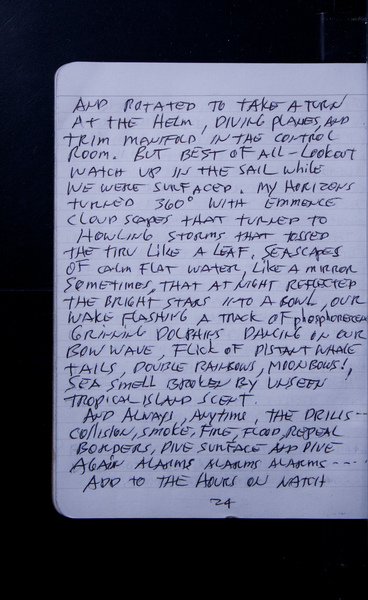 AND ROTATED TO TAKE A TURN
AT THE HELM, DIVING PLANES, AND
TRIM MANIFOLD IN THE CONTROL
ROOM. BUT BEST OF ALL - LOOKOUT
WATCH UP IN THE SAIL WHILE
WE WERE SURFACED. MY HORIZONS
TURNED 360° WITH EMMENCE
CLOUD SCAPES THAT TURNED TO
HOWLING STORMS THAT TOSSED
THE TIRU LIKE A LEAF, SEASCAPES
OF CALM FLAT WATER, LIKE A MIRROR
SOMETIMES, THAT AT NIGHT REFLECTED
THE BRIGHT STARS INTO A BOWL, OUR
WAKE FLASHING A TRACK OF
GRINNING DOLPHINS DANCING ON OUR
BOW WAVE, FLICK OF DISTANT WHALE
TAILS, DOUBLE RAINBOWS, MOONBOWS!,
SEA SMELL BROKEN BY UNSEEN
TROPICAL ISLAND SCENT.
AND ALWAYS, ANYTIME, THE DRILLS --
COLLISION, SMOKE, FIRE, FLOOD, REPEAL
BORDERS, DIVE SURFACE AND DIVE
AGAIN ALARMS ALARMS ALARMS ----
ADD TO THE HOURS ON WATCH
24